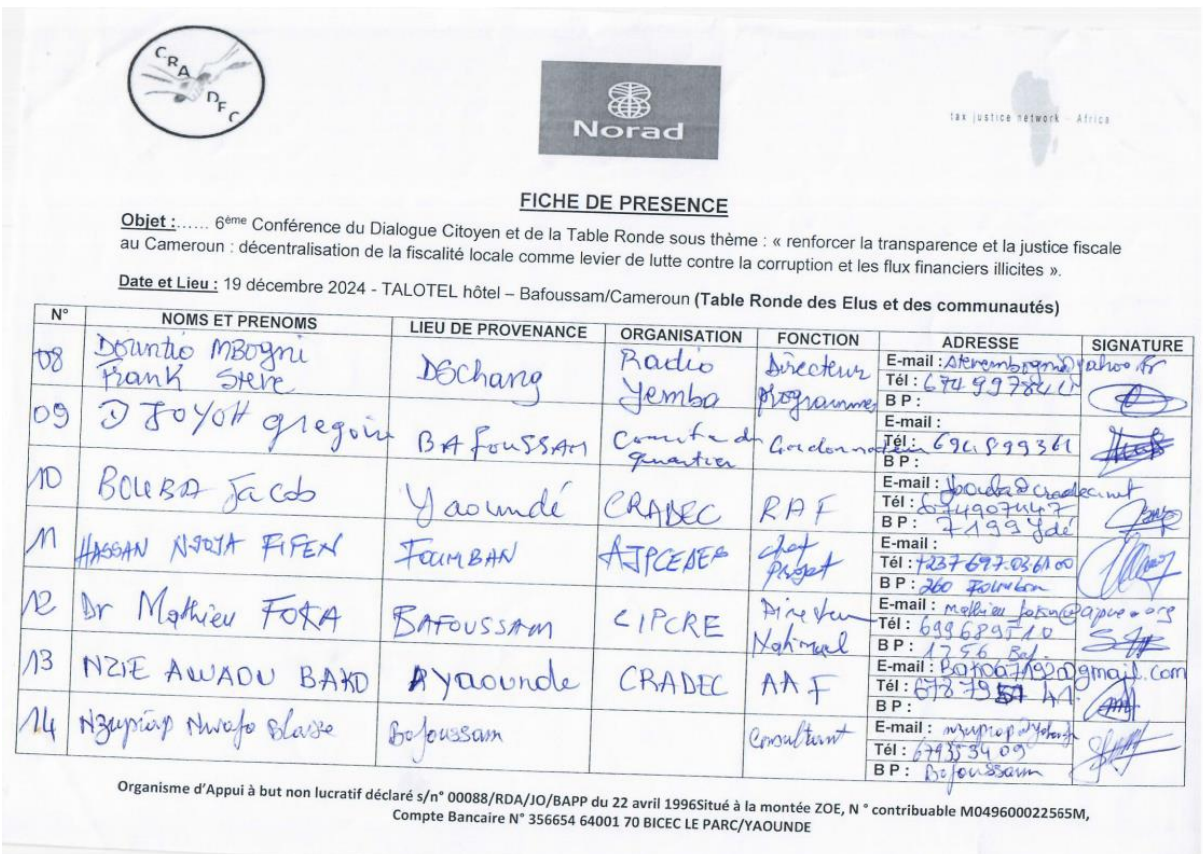 CRADEC
Norad
tax justice network - Africa
FICHE DE PRESENCE
Objet :...... 6ème Conférence du Dialogue Citoyen et de la Table Ronde sous thème : « renforcer la transparence et la justice fiscale
au Cameroun : décentralisation de la fiscalité locale comme levier de lutte contre la corruption et les flux financiers illicites ».
Date et Lieu : 19 décembre 2024 - TALOTEL hôtel – Bafoussam/Cameroun (Table Ronde des Elus et des communautés)
N° NOMS ET PRENOMS LIEU DE PROVENANCE ORGANISATION FONCTION ADRESSE SIGNATURE
08 Dountio MBogni Frank Steve DSchang Radio Yemba Directeur programmes E-mail : stevembogni@yahoo.fr
Tél :
B P :
09 DJOYOH gregoire BAFOUSSAM Comité de quartier Coordonnateur E-mail :
Tél : 694899361
B P :
10 BOUBA Jacob Yaoundé CRADEC RAF E-mail :
Tél : 674907447
B P : 7199 Ydé
11 HASSAN NJOYA FIFEN FOUMBAN chef Projet E-mail :
Tél : +237 697036100
B P : 260 Foumban
12 Dr Mathieu FOKA BAFOUSSAM CIPCRE Directeur National E-mail :
Tél : 699689510
B P : 1256 Baf.
13 NZIE AWAOU BAKO Yaounde CRADEC AAF E-mail :
Tél :
B P :
14 Nzupiap Nwafo Blaise Bafoussam Consultant E-mail :
Tél : 679353409
B P : Bafoussam
Organisme d'Appui à but non lucratif déclaré s/n° 00088/RDA/JO/BAPP du 22 avril 1996Situé à la montée ZOE, N ° contribuable M049600022565M,
Compte Bancaire N° 356654 64001 70 BICEC LE PARC/YAOUNDE